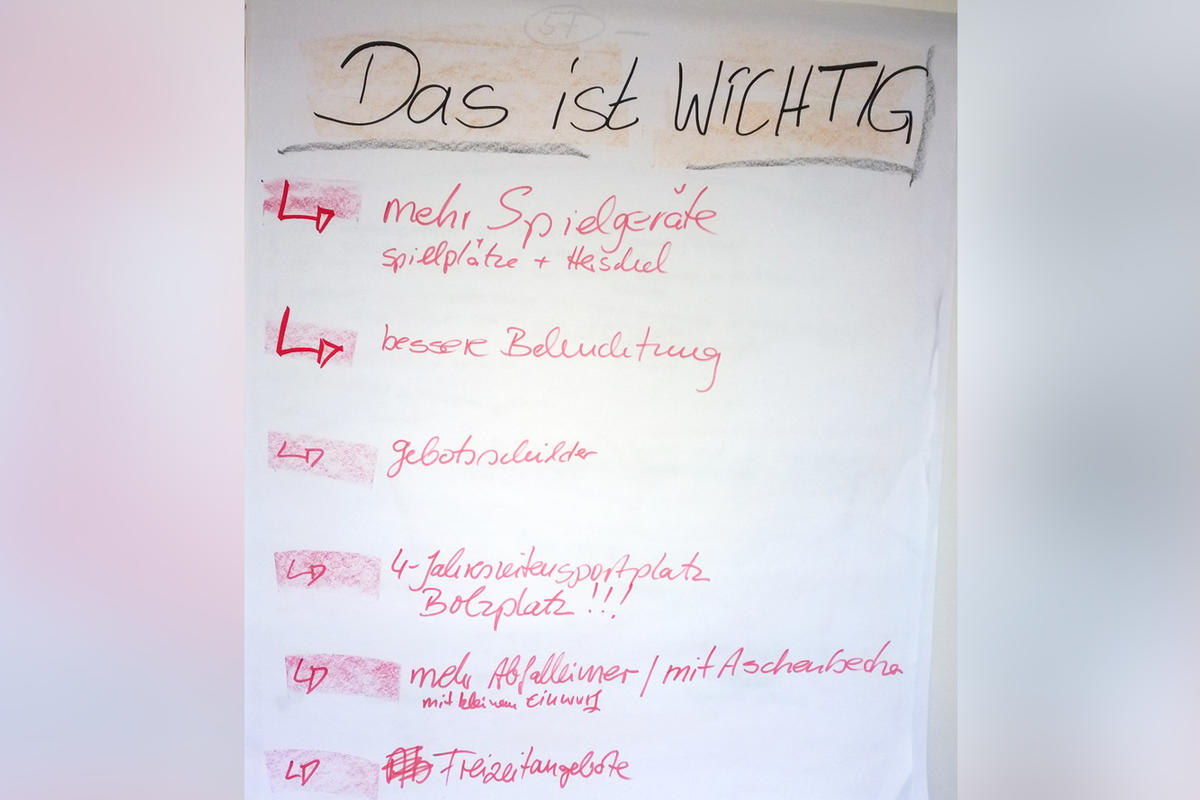 Das ist WICHTIG
mehr Spielgeräte
spielplätze + Herschel
bessere Beleuchtung
gebotsschilder
4-Jahreszeitensportplatz
Bolzplatz!!!
mehr Abfalleimer / mit Aschenbecher
mit kleinem Einwurf
Freizeitangebote